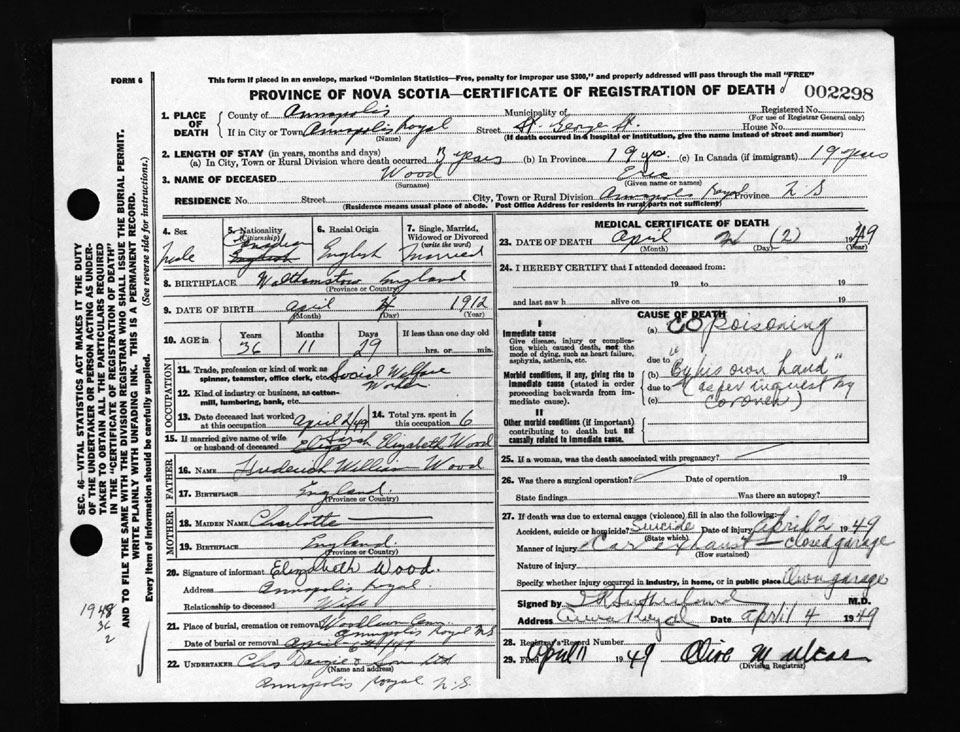 This form if placed in an envelope, marked "Dominion Statistics—Free, penalty for improper use $300," and properly addressed will pass through the mail "FREE"
FORM 6
PROVINCE OF NOVA SCOTIA—CERTIFICATE OF REGISTRATION OF DEATH
002298
1. PLACE OF DEATH
County of Annapolis
Municipality of
Registered No.
(For use of Registrar General only)
If in City or Town Annapolis Royal
(Name)
Street St. George St.
House No.
(If death occurred in a hospital or institution, give the name instead of street and number)
2. LENGTH OF STAY (in years, months and days)
(a) In City, Town or Rural Division where death occurred years (b) In Province 19 yrs. (c) In Canada (if immigrant) 19 years
3. NAME OF DECEASED Wood Eric
(Surname) (Given name or names)
RESIDENCE No. Street City, Town or Rural Division Annapolis Royal Province N S
(Residence means usual place of abode. Post Office Address for residents in rural parts not sufficient)
4. Sex
Male
5. Nationality
(Citizenship)
Canadian
English
6. Racial Origin
English
7. Single, Married, Widowed or Divorced
(write the word)
Married
8. BIRTHPLACE Walthamstow England
(Province or Country)
9. DATE OF BIRTH April 4 1912
(Month) (Day) (Year)
10. AGE in
Years Months Days If less than one day old
36 11 29 hrs. or min.
OCCUPATION
11. Trade, profession or kind of work as spinner, teamster, office clerk, etc. Social Welfare Worker
12. Kind of industry or business, as cotton-mill, lumbering, bank, etc.
13. Date deceased last worked at this occupation April 2/49
14. Total yrs. spent in this occupation 6
15. If married give name of wife or husband of deceased Elizabeth Wood
FATHER
16. NAME Frederick William Wood
17. BIRTHPLACE England
(Province or Country)
MOTHER
18. MAIDEN NAME Charlotte
19. BIRTHPLACE England.
(Province or Country)
20. Signature of informant Elizabeth Wood.
Address Annapolis Royal.
Relationship to deceased Wife
21. Place of burial, cremation or removal Woodlawn Cem. Annapolis Royal N S
Date of burial or removal April
22. UNDERTAKER & Son Ltd
(Name and address)
Annapolis Royal N. S.
MEDICAL CERTIFICATE OF DEATH
23. DATE OF DEATH April (2) 1949
(Month) (Day) (Year)
24. I HEREBY CERTIFY that I attended deceased from:
19 to 19
and last saw h alive on 19
CAUSE OF DEATH
I
Immediate cause
Give disease, injury or complication, which caused death, not the mode of dying, such as heart failure, asphyxia, asthenia, etc.
(a) CO poisoning
due to
Morbid conditions, if any, giving rise to immediate cause (stated in order proceeding backwards from immediate cause).
(b) "By his own hand"
due to (as per inquest by
(c) Coroner)
II
Other morbid conditions (if important) contributing to death but not causally related to immediate cause.
25. If a woman, was the death associated with pregnancy?
26. Was there a surgical operation? Date of operation 19
State findings Was there an autopsy?
27. If death was due to external causes (violence) fill in also the following:
Accident, suicide or homicide? Suicide Date of injury April 2 1949
(State which)
Manner of injury Car exhaust – closed garage
(How sustained)
Nature of injury
Specify whether injury occurred in industry, in home, or in public place Own garage
Signed by Sutherland M.D.
Address Anna Royal Date April 4 1949
28. Registrar's Record Number
29. Filed April 11 1949 Olive M
(Division Registrar)
SEC. 46—VITAL STATISTICS ACT MAKES IT THE DUTY
OF THE UNDERTAKER OR PERSON ACTING AS UNDER-
TAKER TO OBTAIN ALL THE PARTICULARS REQUIRED
IN THE "CERTIFICATE OF REGISTRATION OF DEATH"
AND TO FILE THE SAME WITH THE DIVISION REGISTRAR WHO SHALL ISSUE THE BURIAL PERMIT.
WRITE PLAINLY WITH UNFADING INK. THIS IS A PERMANENT RECORD.
Every item of information should be carefully supplied. (See reverse side for instructions.)
1948
36
2